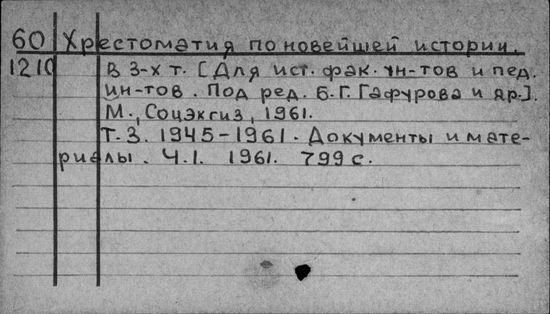 60 Хрестоматия по новейшей истории.
1210 В 3-х т. [Для ист. фак. ун-тов и пед.
ин-тов. Под ред. Б.Г. Гафурова и др.].
М., Соцэкгиз, 1961.
Т. 3. 1945-1961. Документы и мате-
риалы. Ч.1. 1961. 799 с.